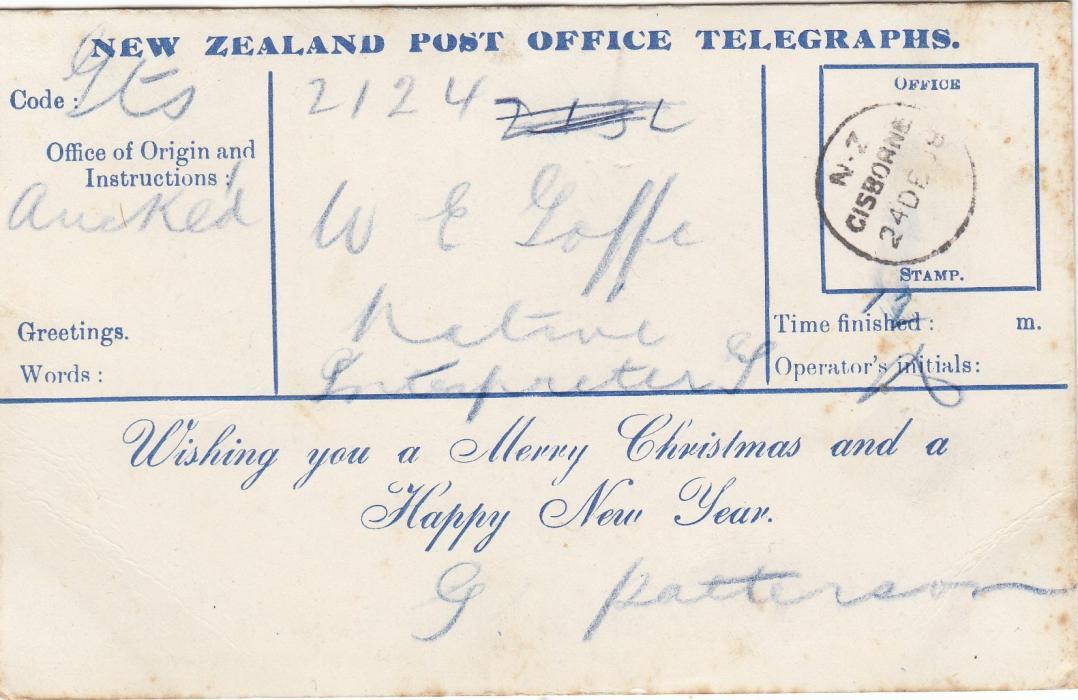 NEW ZEALAND POST OFFICE TELEGRAPHS.
Code : Gts
2124
Office of Origin and
Instructions :
Auckl'd
W E Goffe
Native
Interpreter G
Greetings.
Words :
OFFICE
N-Z
GISBORNE
24 DE
STAMP.
Time finished : m.
Operator's initials:
Wishing you a Merry Christmas and a
Happy New Year.
G Patterson